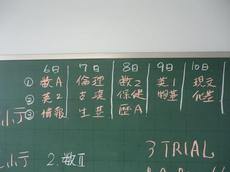 6日 7日 8日 9日 10日
① 数A 倫理 数2 英1 現文
② 英2 古漢 保健 物基 化基
③ 情報 生基 歴A
小テ
小テ 2.数II 3 TRIAL